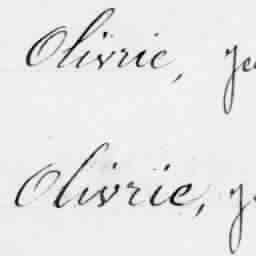 Olivrie,
Olivrie,